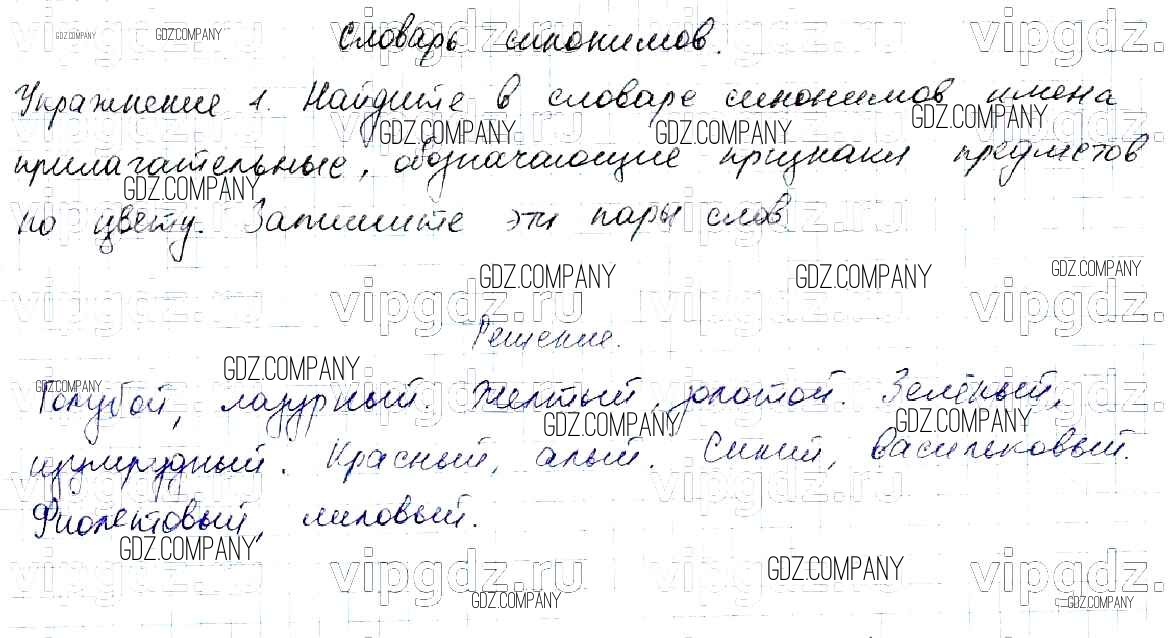 Словарь синонимов.
Упражнение 1. Найдите в словаре синонимов имена
прилагательные, обозначающие признаки предметов
по цвету. Запишите эти пары слов
Решение.
Голубой, лазурный. Желтый, золотой. Зелёный,
изумрудный. Красный, алый. Синий, васильковый.
Фиолетовый, лиловый.
GDZ.COMPANY
vipgdz.ru